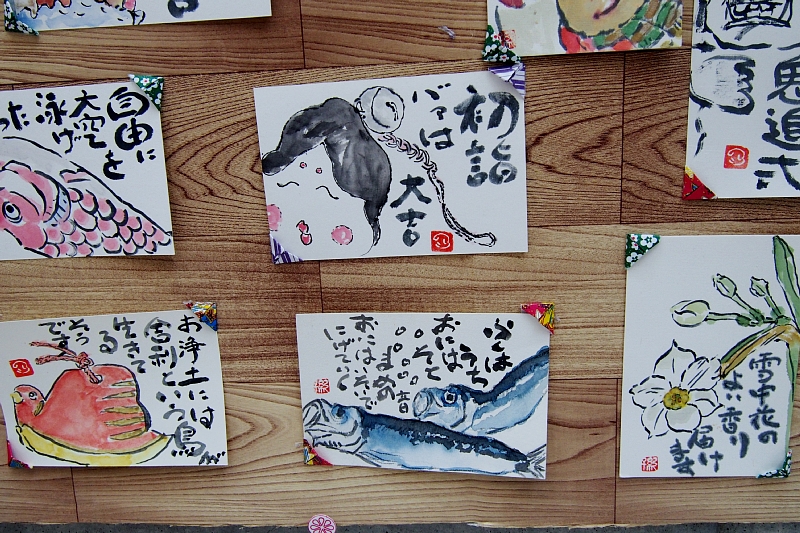 自由に
大空を
泳げ
った
初詣
バァは
大吉
思追弍
お浄土には
舎利という鳥が
生きて
る
そう
です
ふくは
うち
おには
そと
まめの音
おにはいそいで
にげていく
雪中花の
よい香り
届け
ます